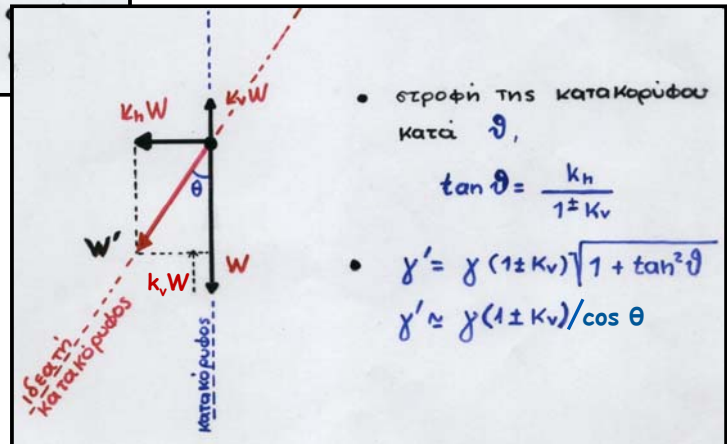 kₕW
kᵥW
θ
W'
W
kᵥW
ιδεατή
κατακόρυφος
κατακόρυφος
• στροφή της κατακορύφου
κατά θ,
tan θ = kₕ / 1 ± Kᵥ
• γ' = γ (1 ± Kᵥ) √1 + tan²θ
γ' ≃ γ (1 ± Kᵥ) / cos θ